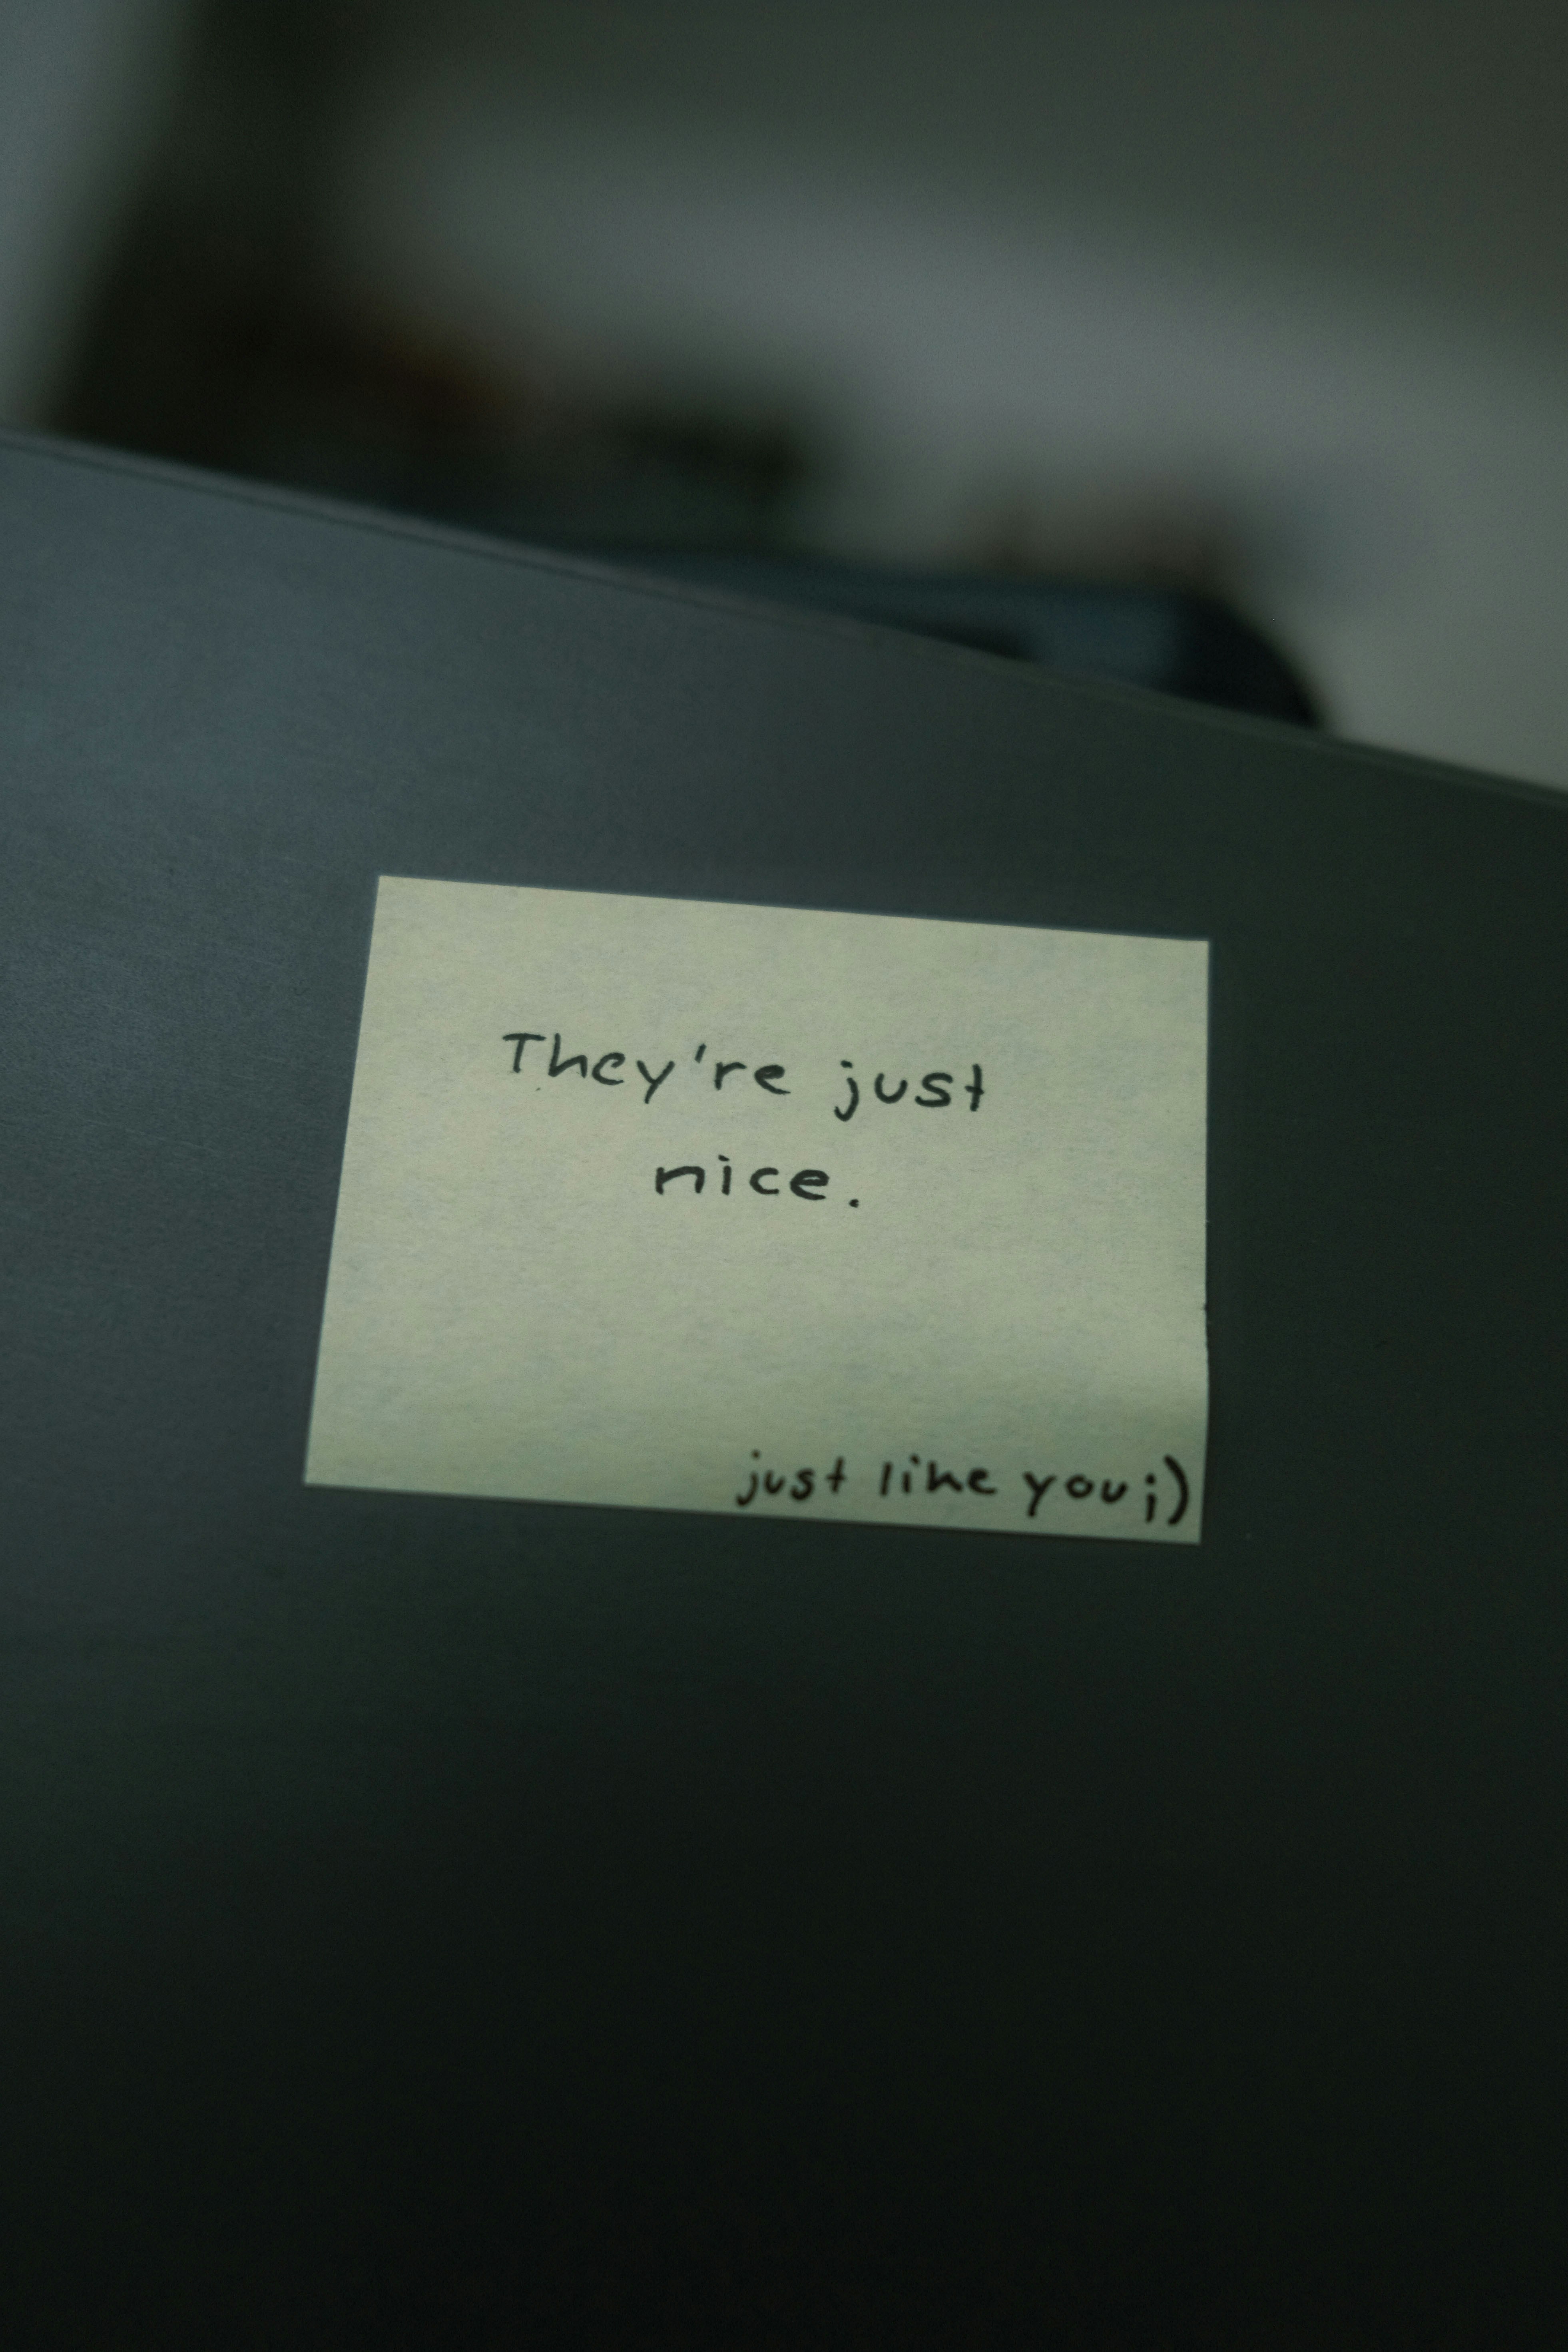 They're just
nice.
just like you;)